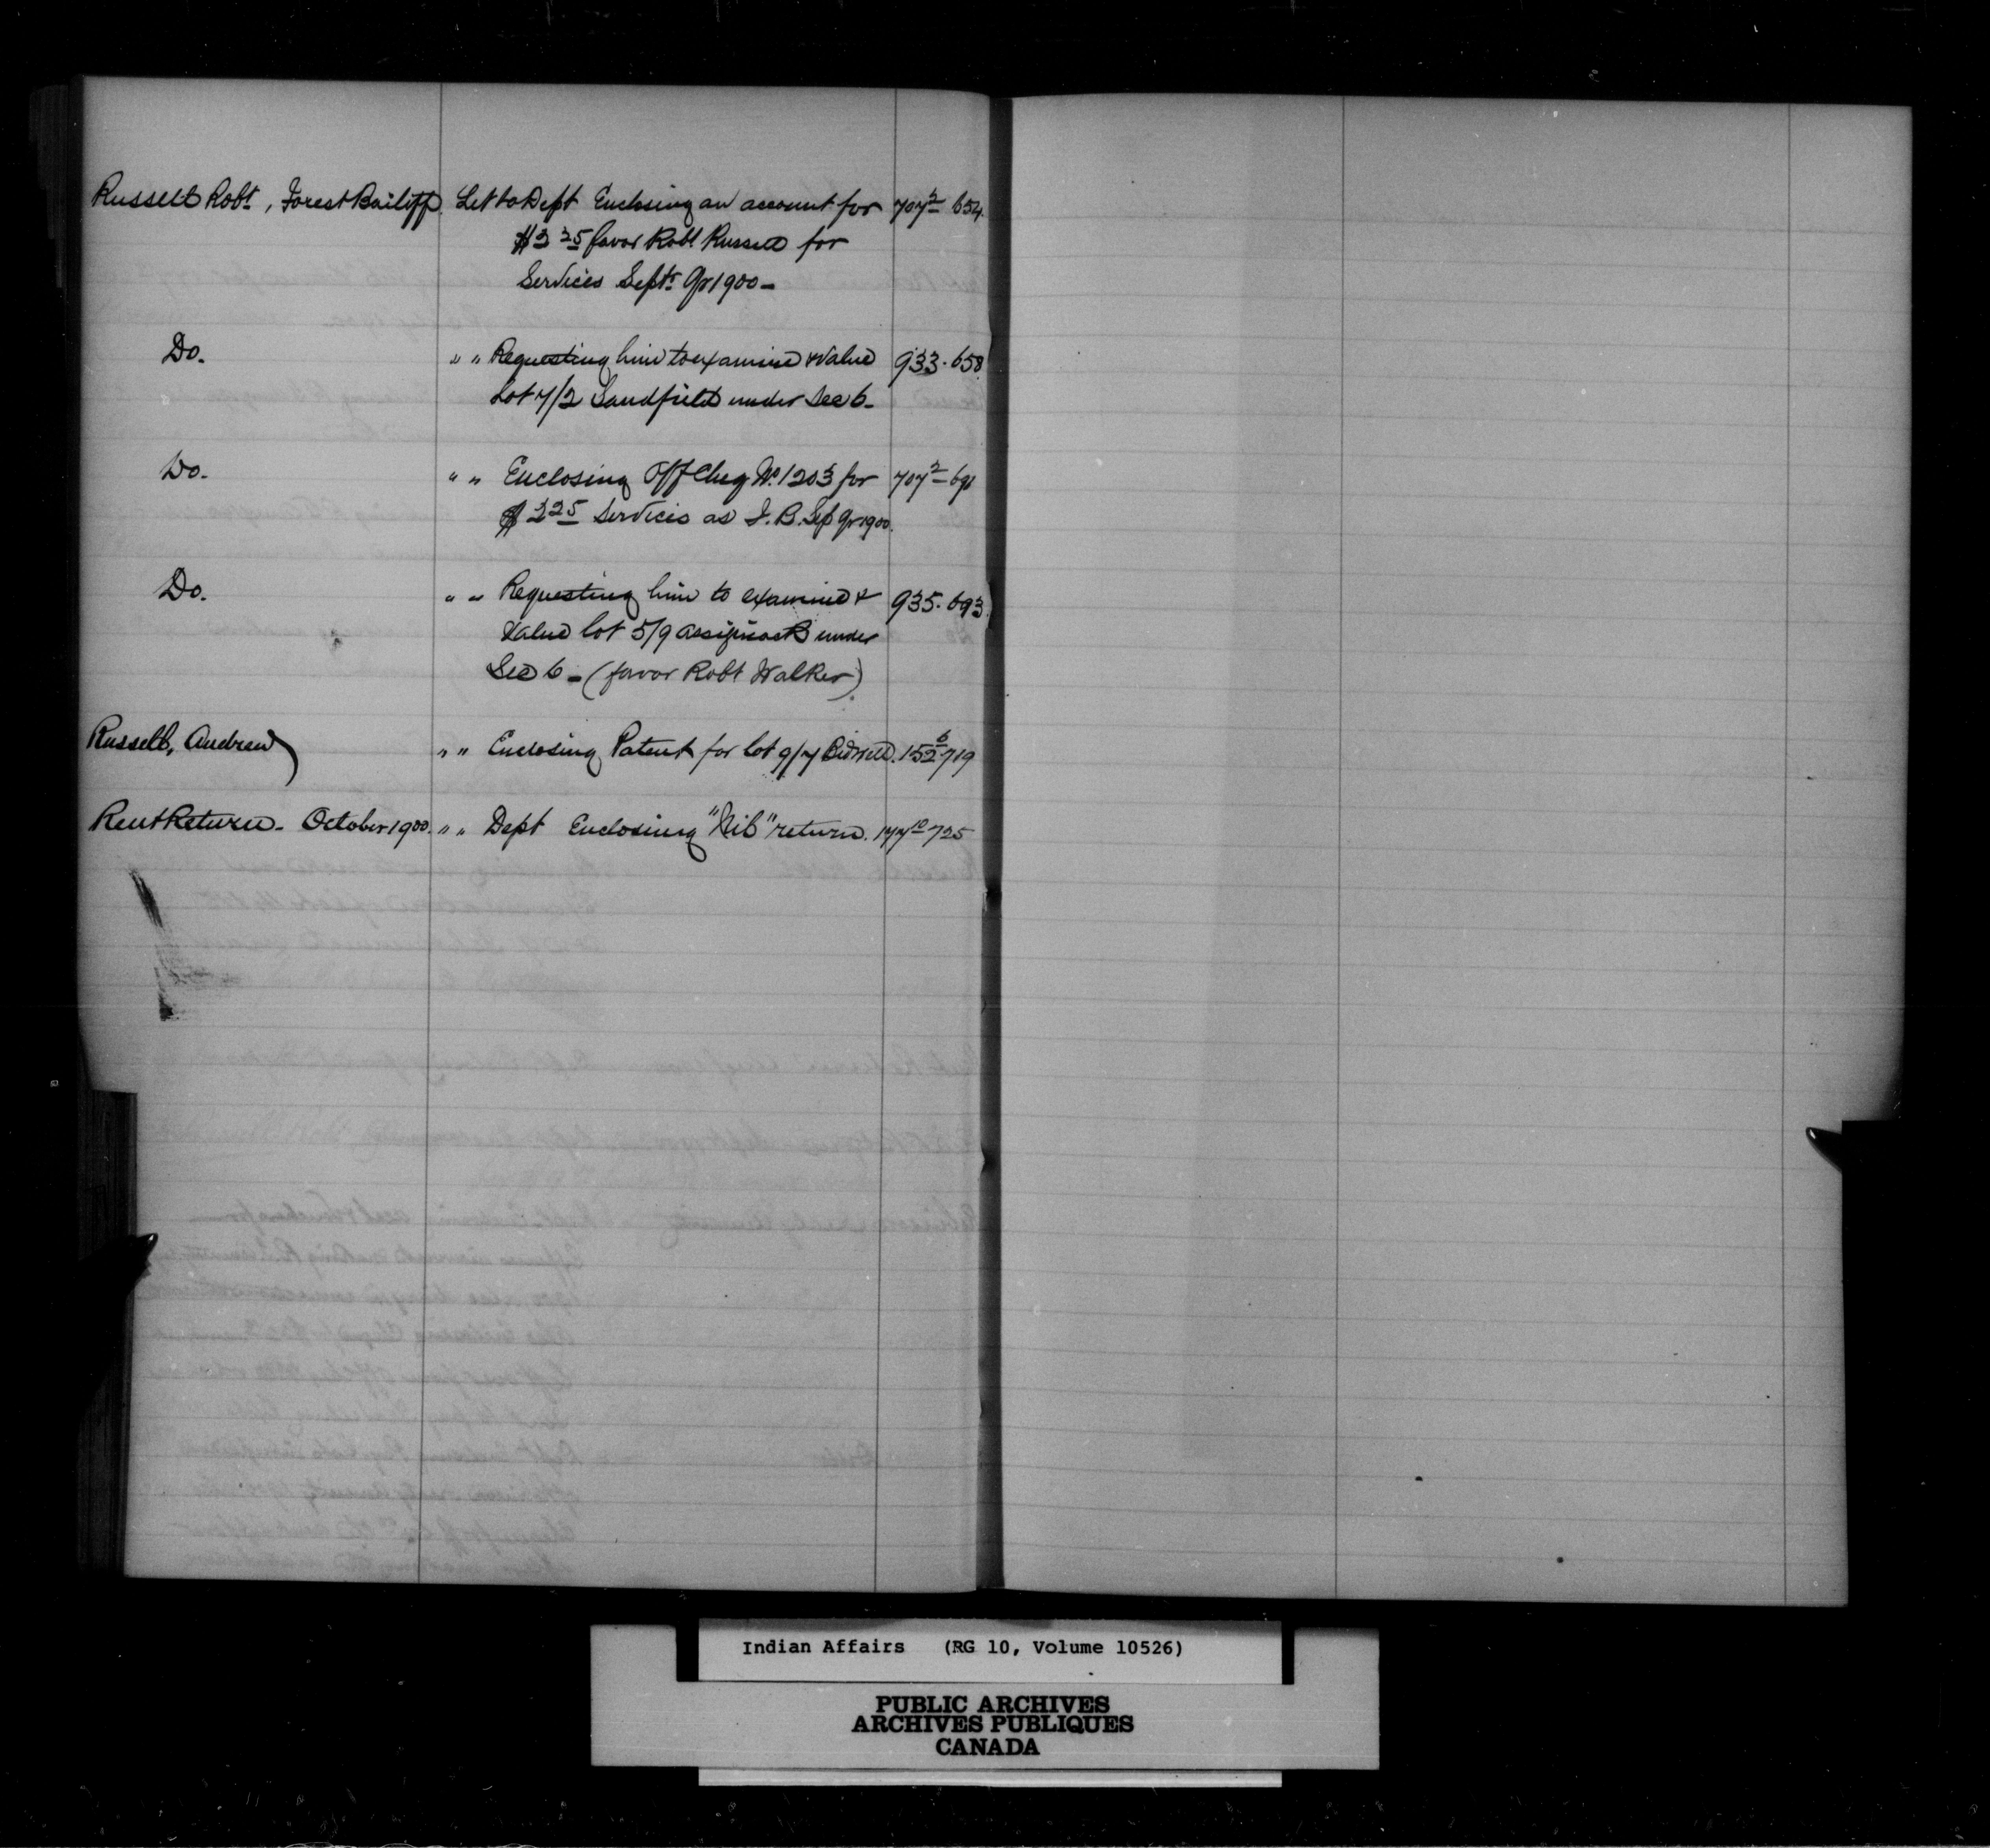 Russell Robt, Forest Bailiff. Let to Dept Enclosing an account for 707 2 654.
$3 25 favor Robt Russell for
Services Septr Qr 1900 -
Do. " " Requesting him to examine & value 933. 658
Lot 7/2 Sandfield under Sec 6 -
Do. " " Enclosing Off Cheq No. 1203 for 707 2 691
$ 3 25 Services as F. B. Sep Qr 1900.
Do. " " Requesting him to examine & 935. 693.
Value lot 5/9 Assiginack under
Sec 6 - (favor Robt Walker)
Russell, Andrew " " Enclosing Patent for lot 9/7 Bidwell. 152 6 719
Rent Return - October 1900. " " Dept Enclosing "Nil" return. 177 10 725
Indian Affairs (RG 10, Volume 10526)
PUBLIC ARCHIVES
ARCHIVES PUBLIQUES
CANADA